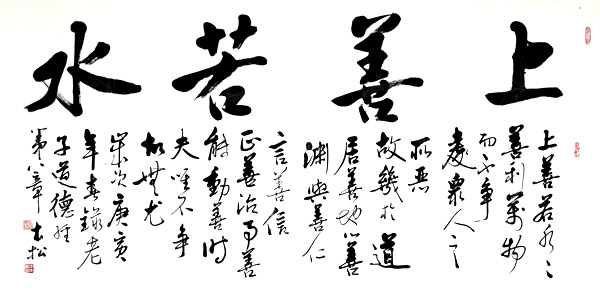 上善若水
上善若水〻
善利萬物
而不爭
處衆人之
所惡
故幾於道
居善地心善
淵與善仁
言善信
正善治事善
能動善時
夫唯不爭
故無尤
歲次庚寅
年春錄老
子道德經
第八章